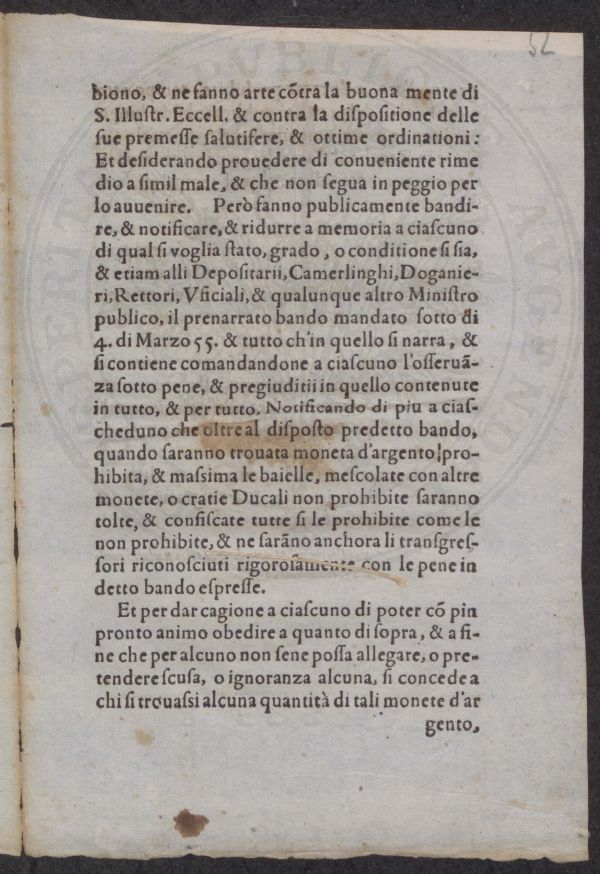 52
biono, & ne fanno arte cõtra la buona mente di
S. Illuſtr. Eccell. & contra la diſpoſitione delle
ſue premeſſe ſalutifere, & ottime ordinationi:
Et deſiderando prouedere di conueniente rime
dio a ſimil male, & che non ſegua in peggio per
lo auuenire. Però fanno publicamente bandi-
re, & notificare, & ridurre a memoria a ciaſcuno
di qual ſi voglia ſtato, grado, o conditione ſi ſia,
& etiam alli Depoſitarii, Camerlinghi, Doganie-
ri, Rettori, Vficiali, & qualunque altro Miniſtro
publico, il prenarrato bando mandato ſotto di
4. di Marzo 55. & tutto ch'in quello ſi narra, &
ſi contiene comandandone a ciaſcuno l'oſſeruã-
za ſotto pene, & pregiuditii in quello contenute
in tutto, & per tutto. Notificando di piu a ciaſ-
cheduno che oltre al diſpoſto predetto bando,
quando ſaranno trouata moneta d'argento pro-
hibita, & maſſima le baielle, meſcolate con altre
monete, o cratie Ducali non prohibite ſaranno
tolte, & confiſcate tutte ſi le prohibite come le
non prohibite, & ne ſarãno anchora li tranſgreſ-
ſori riconoſciuti rigoroſamente con le pene in
detto bando eſpreſſe.
Et per dar cagione a ciaſcuno di poter cõ piu
pronto animo obedire a quanto di ſopra, & a fi-
ne che per alcuno non ſene poſſa allegare, o pre-
tendere ſcuſa, o ignoranza alcuna, ſi concede a
chi ſi trouaſſi alcuna quantità di tali monete d'ar
gento,